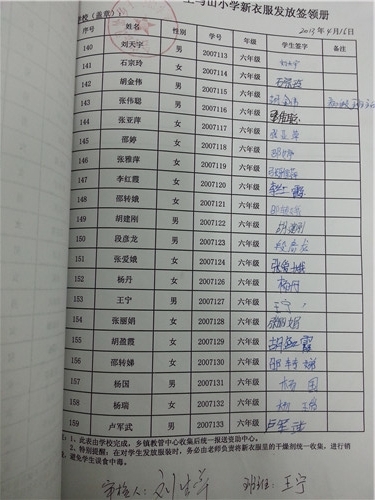 马山小学新衣服发放签领册
学校（盖章）： 2013年4月16日
序号 姓名 性别 学号 年级 学生签字 备注
140 刘天宇 男 2007113 六年级 刘天宇
141 石宗玲 女 2007114 六年级 石宗玲
142 胡金伟 男 2007115 六年级 胡金伟
143 张伟聪 男 2007116 六年级
144 张亚萍 女 2007117 六年级 张亚萍
145 邵婷 女 2007118 六年级 邵婷
146 张雅萍 女 2007119 六年级 张雅萍
147 李红霞 女 2007120 六年级 李红霞
148 邵转娥 女 2007121 六年级 邵转娥
149 胡建刚 男 2007122 六年级 胡建刚
150 段彦龙 男 2007123 六年级 段彦龙
151 张爱娥 女 2007124 六年级 张爱娥
152 杨丹 女 2007126 六年级 杨丹
153 王宁 男 2007127 六年级 王宁
154 张丽娟 女 2007128 六年级 张丽娟
155 胡盈霞 女 2007129 六年级 胡盈霞
156 邵转娣 女 2007130 六年级 邵转娣
157 杨国 男 2007131 六年级 杨国
158 杨瑞 女 2007132 六年级 杨瑞
159 卢军武 男 2007133 六年级 卢军武
1、此表由学校完成，乡镇教管中心收集后统一报送资助中心。
2、特别提醒：在对学生发放装时，务必由老师负责将新衣服里的干燥剂统一收集，进行销
避免学生误食中毒。
审核人： 班班：王宁